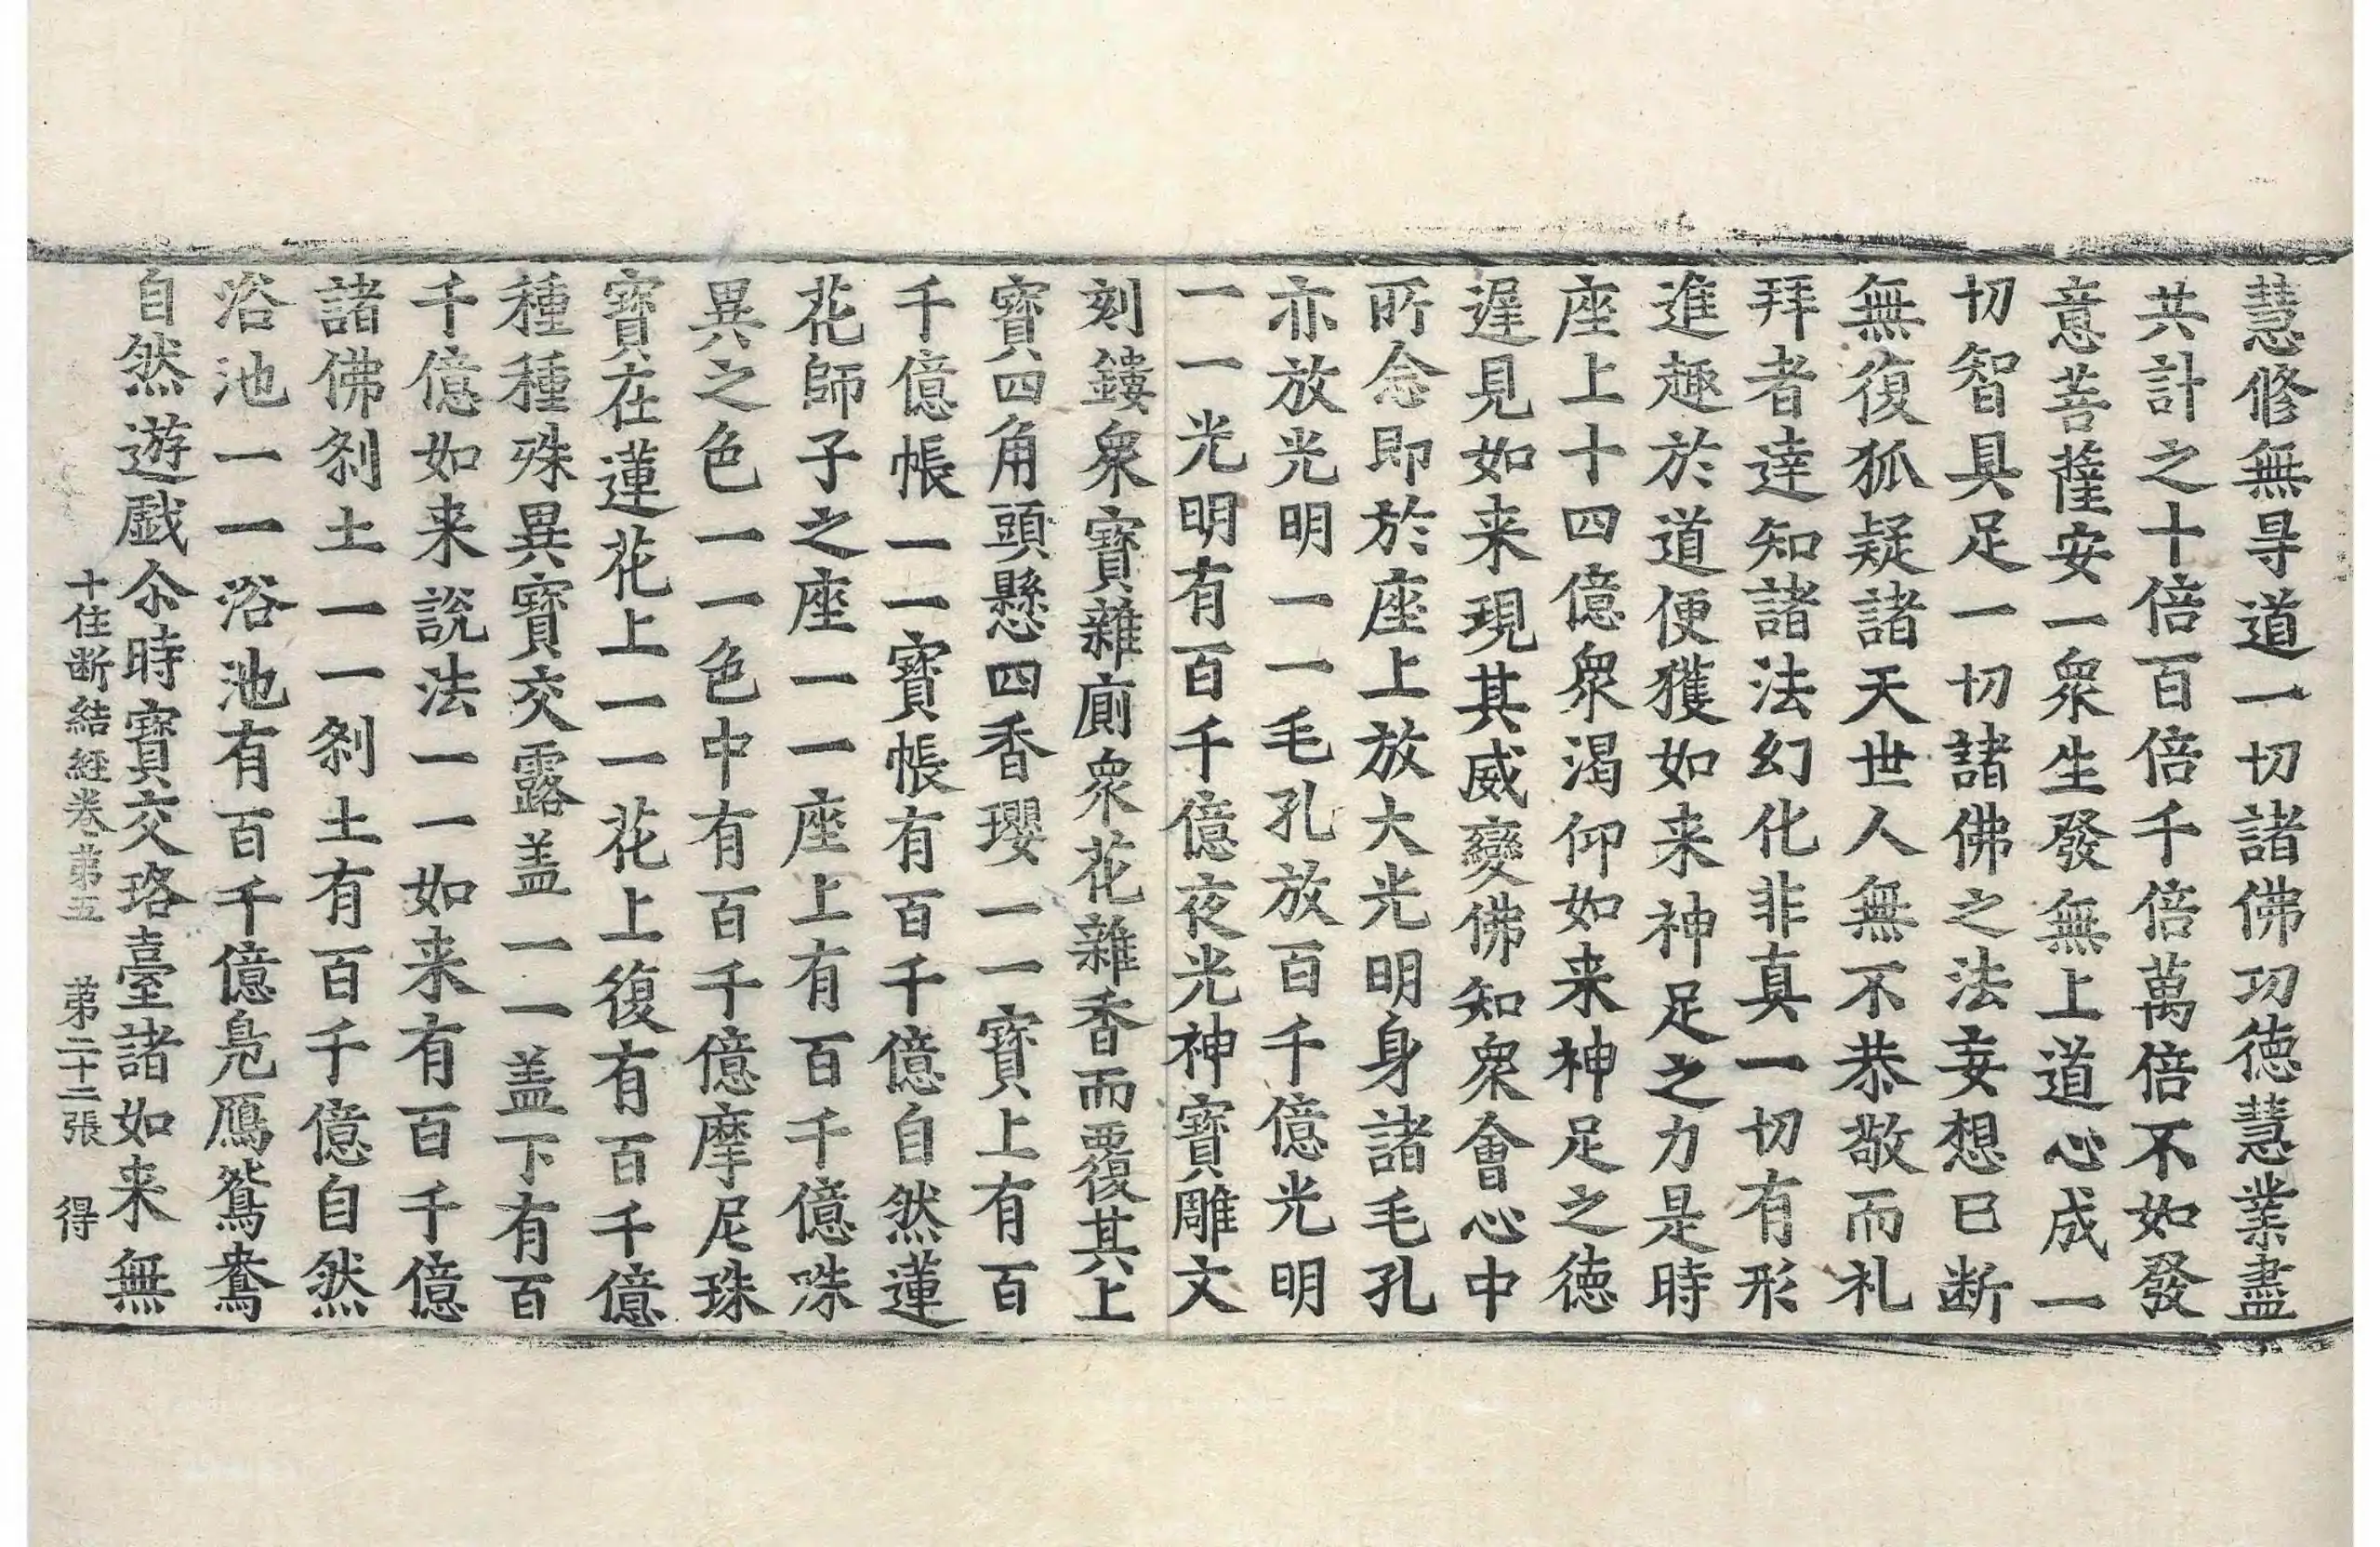 慧修無㝵道一切諸佛功徳慧業盡
共計之十倍百倍千倍萬倍不如發
意菩薩安一衆生發無上道心成一
切智具足一切諸佛之法妄想已断
無復狐疑諸天世人無不恭敬而礼
拜者達知諸法幻化非真一切有形
進趣於道便獲如来神足之力是時
座上十四億衆渴仰如来神足之徳
遅見如来現其威變佛知衆會心中
所念即於座上放大光明身諸毛孔
亦放光明一一毛孔放百千億光明
一一光明有百千億夜光神寶雕文
刻鏤衆寶雜廁衆花雜香而覆其上
寶四角頭懸四香瓔一一寶上有百
千億帳一一寶帳有百千億自然蓮
花師子之座一一座上有百千億殊
異之色一一色中有百千億摩尼珠
寶在蓮花上一一花上復有百千億
種種殊異寶交露盖一一盖下有百
千億如来説法一一如来有百千億
諸佛刹土一一刹土有百千億自然
浴池一一浴池有百千億鳬鴈鴛鴦
自然遊戯尒時寶交珞臺諸如来無
十住断結経卷第五 第二十二張 得